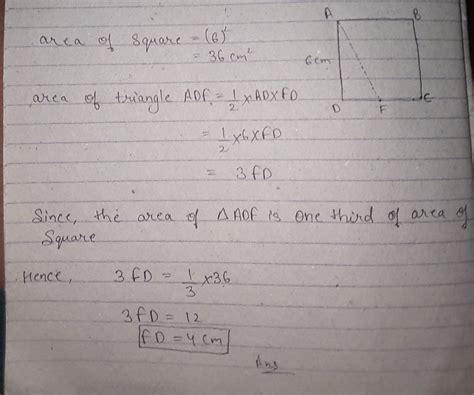 area of square = (6)²
= 36 cm²
A B
6cm
D F C
area of triangle ADF = 1/2 × AD × FD
= 1/2 × 6 × FD
= 3 FD
Since, the area of △ADF is one third of area of
Square
Hence, 3 FD = 1/3 × 36
3 FD = 12
FD = 4 cm
Ans